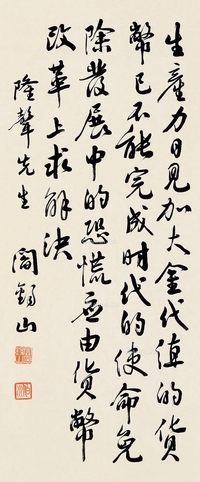 生產力日見加大金代值的貨
幣已不能完成时代的使命免
除發展中的恐慌应由货幣
改革上求解决
隆聲先生
閻錫山